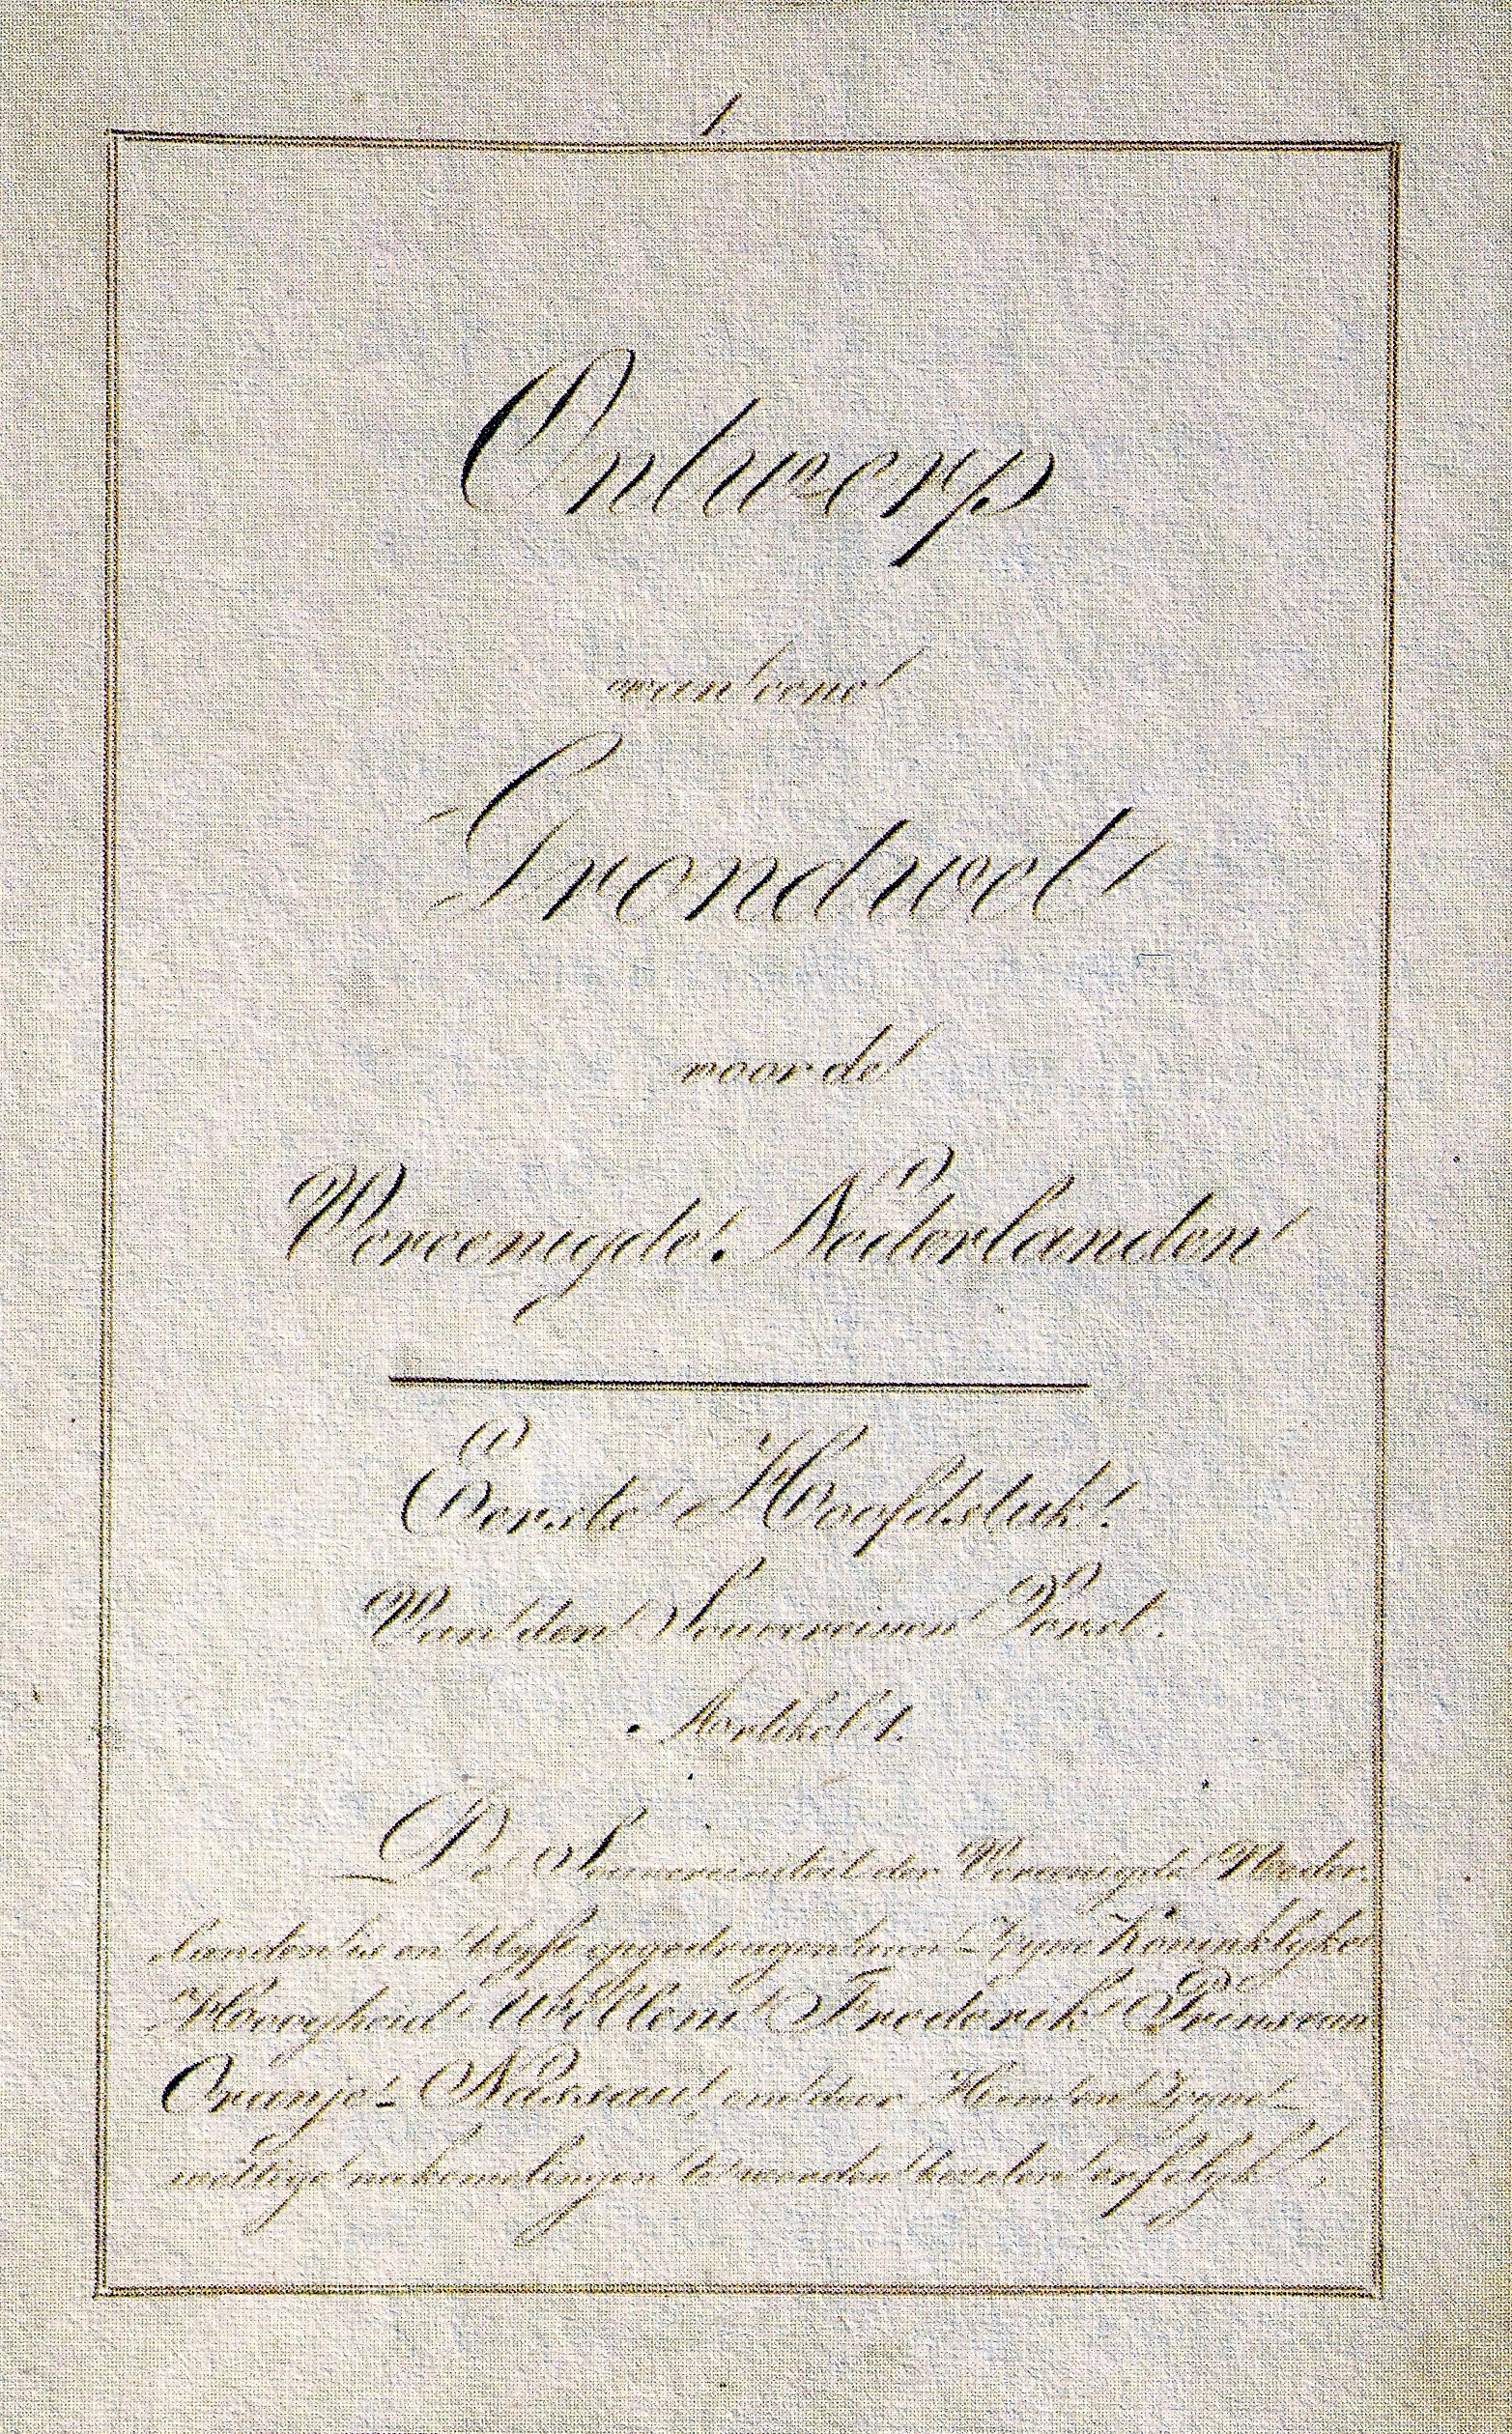 1.
Ontwerp
van eene
Grondwet
voor de
Vereenigde Nederlanden
Eerste Hoofdstuk.
Van den Souvereinen Vorst.
Artikel 1.
De Souvereiniteit der Vereenigde Neder-
landen is en blyft opgedragen aan Zyne Koninklyke
Hoogheid Willem Frederik Prins van
Oranje-Nassau, om door Hem en Zyne
wettige nakomelingen te worden bezeten erfelyk,